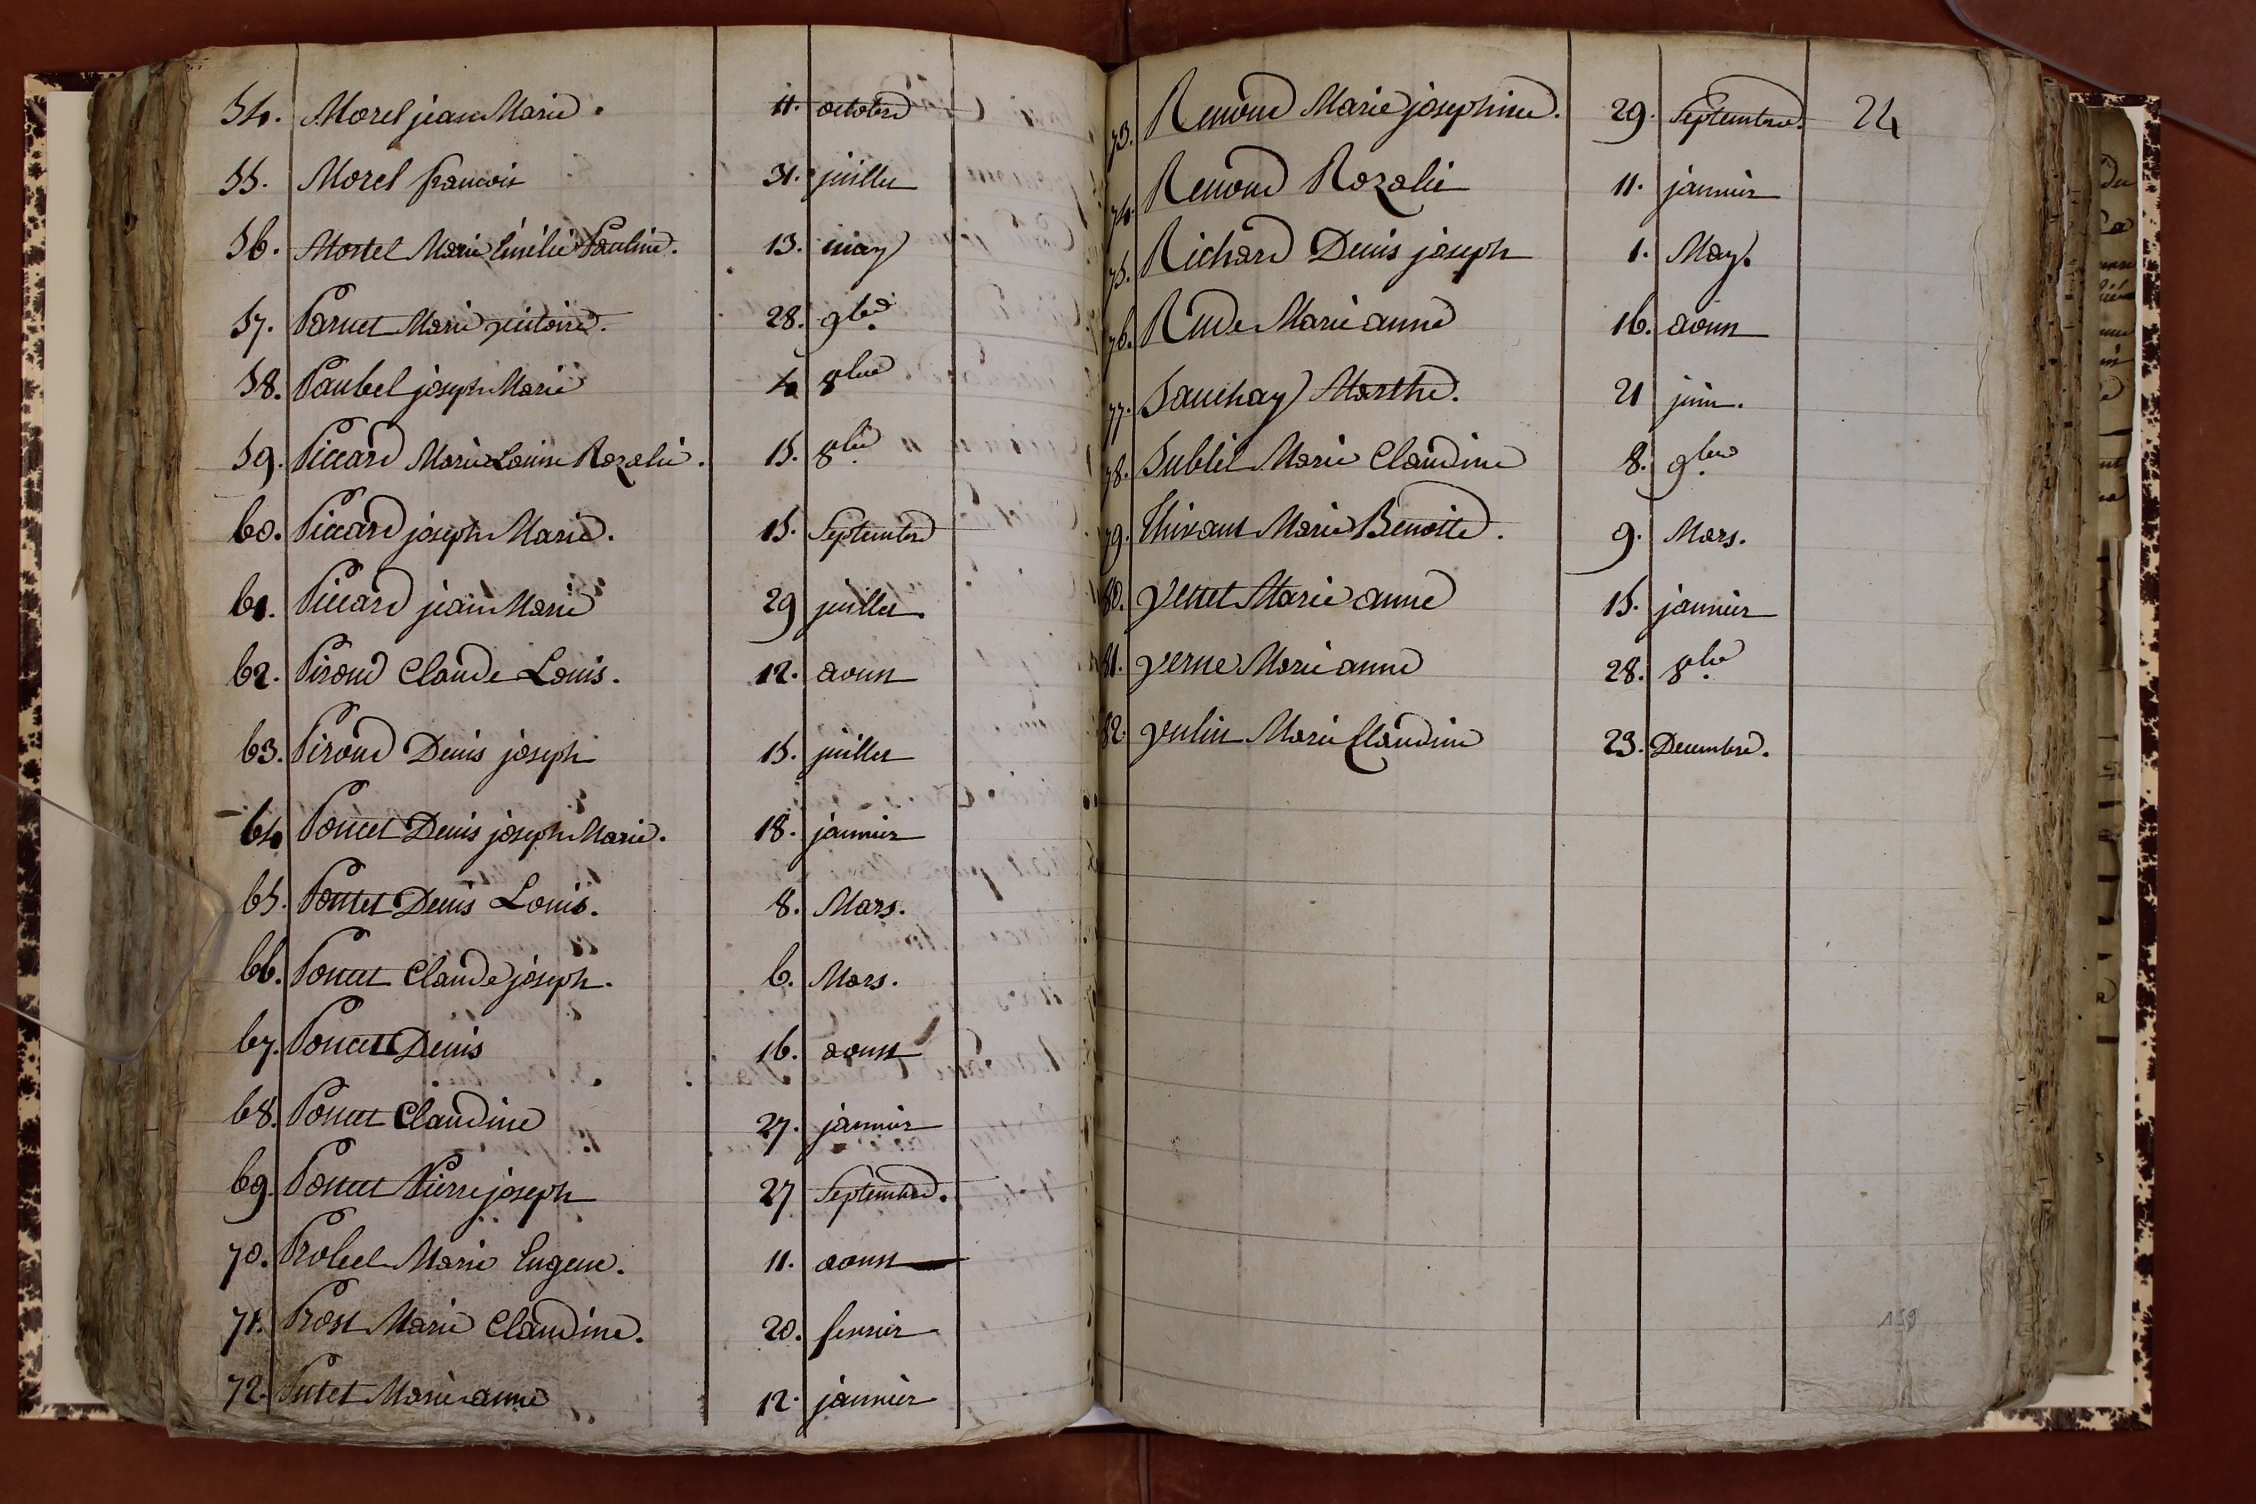 54. Morel jean Marie. 11. octobre
55. Morel francois 31. juillet
56. Mortel Marie Emélie Pauline. 13. may
57. Parnet Marie victoire. 28. 9bre
58. Paubel joseph Marie 4 8bre
59. Piccard Marie Louise Rozalie. 15. 8bre
60. Piccard joseph Marie. 15. Septembre
61. Piccard jean Marie 29 juillet.
62. Piroud Claude Louis. 12. aoust
63. Piroud Denis joseph 15. juillet
64 Poncet Denis joseph Marie. 18. janvier
65. Pontet Denis Louis. 8. Mars.
66. Poncet Claude joseph. 6. Mars.
67. Poncet Denis 16. aoust
68. Poncet Claudine 27. janvier
69. Poncet Pierre joseph 27 Septembre.
70. Probel Marie Eugene. 11. aoust
71. Prost Marie Claudine. 20. fevrier
72. Putet Marie anne 12. janvier
73. Renoud Marie josephine. 29. Septembre. 24
74. Renoud Rozalie 11. janvier
75. Richard Denis joseph 1. May.
76. Rude Marie anne 16. aoust
77. Sauchay Marthe. 21 juin.
78. Sublet Marie Claudine 8. 9bre
79. Thivant Marie Benoite. 9. Mars.
80. vettet Marie anne 15. janvier
81. verne Marie anne 28. 8bre
82. vulin Marie Claudine 23. Decembre.